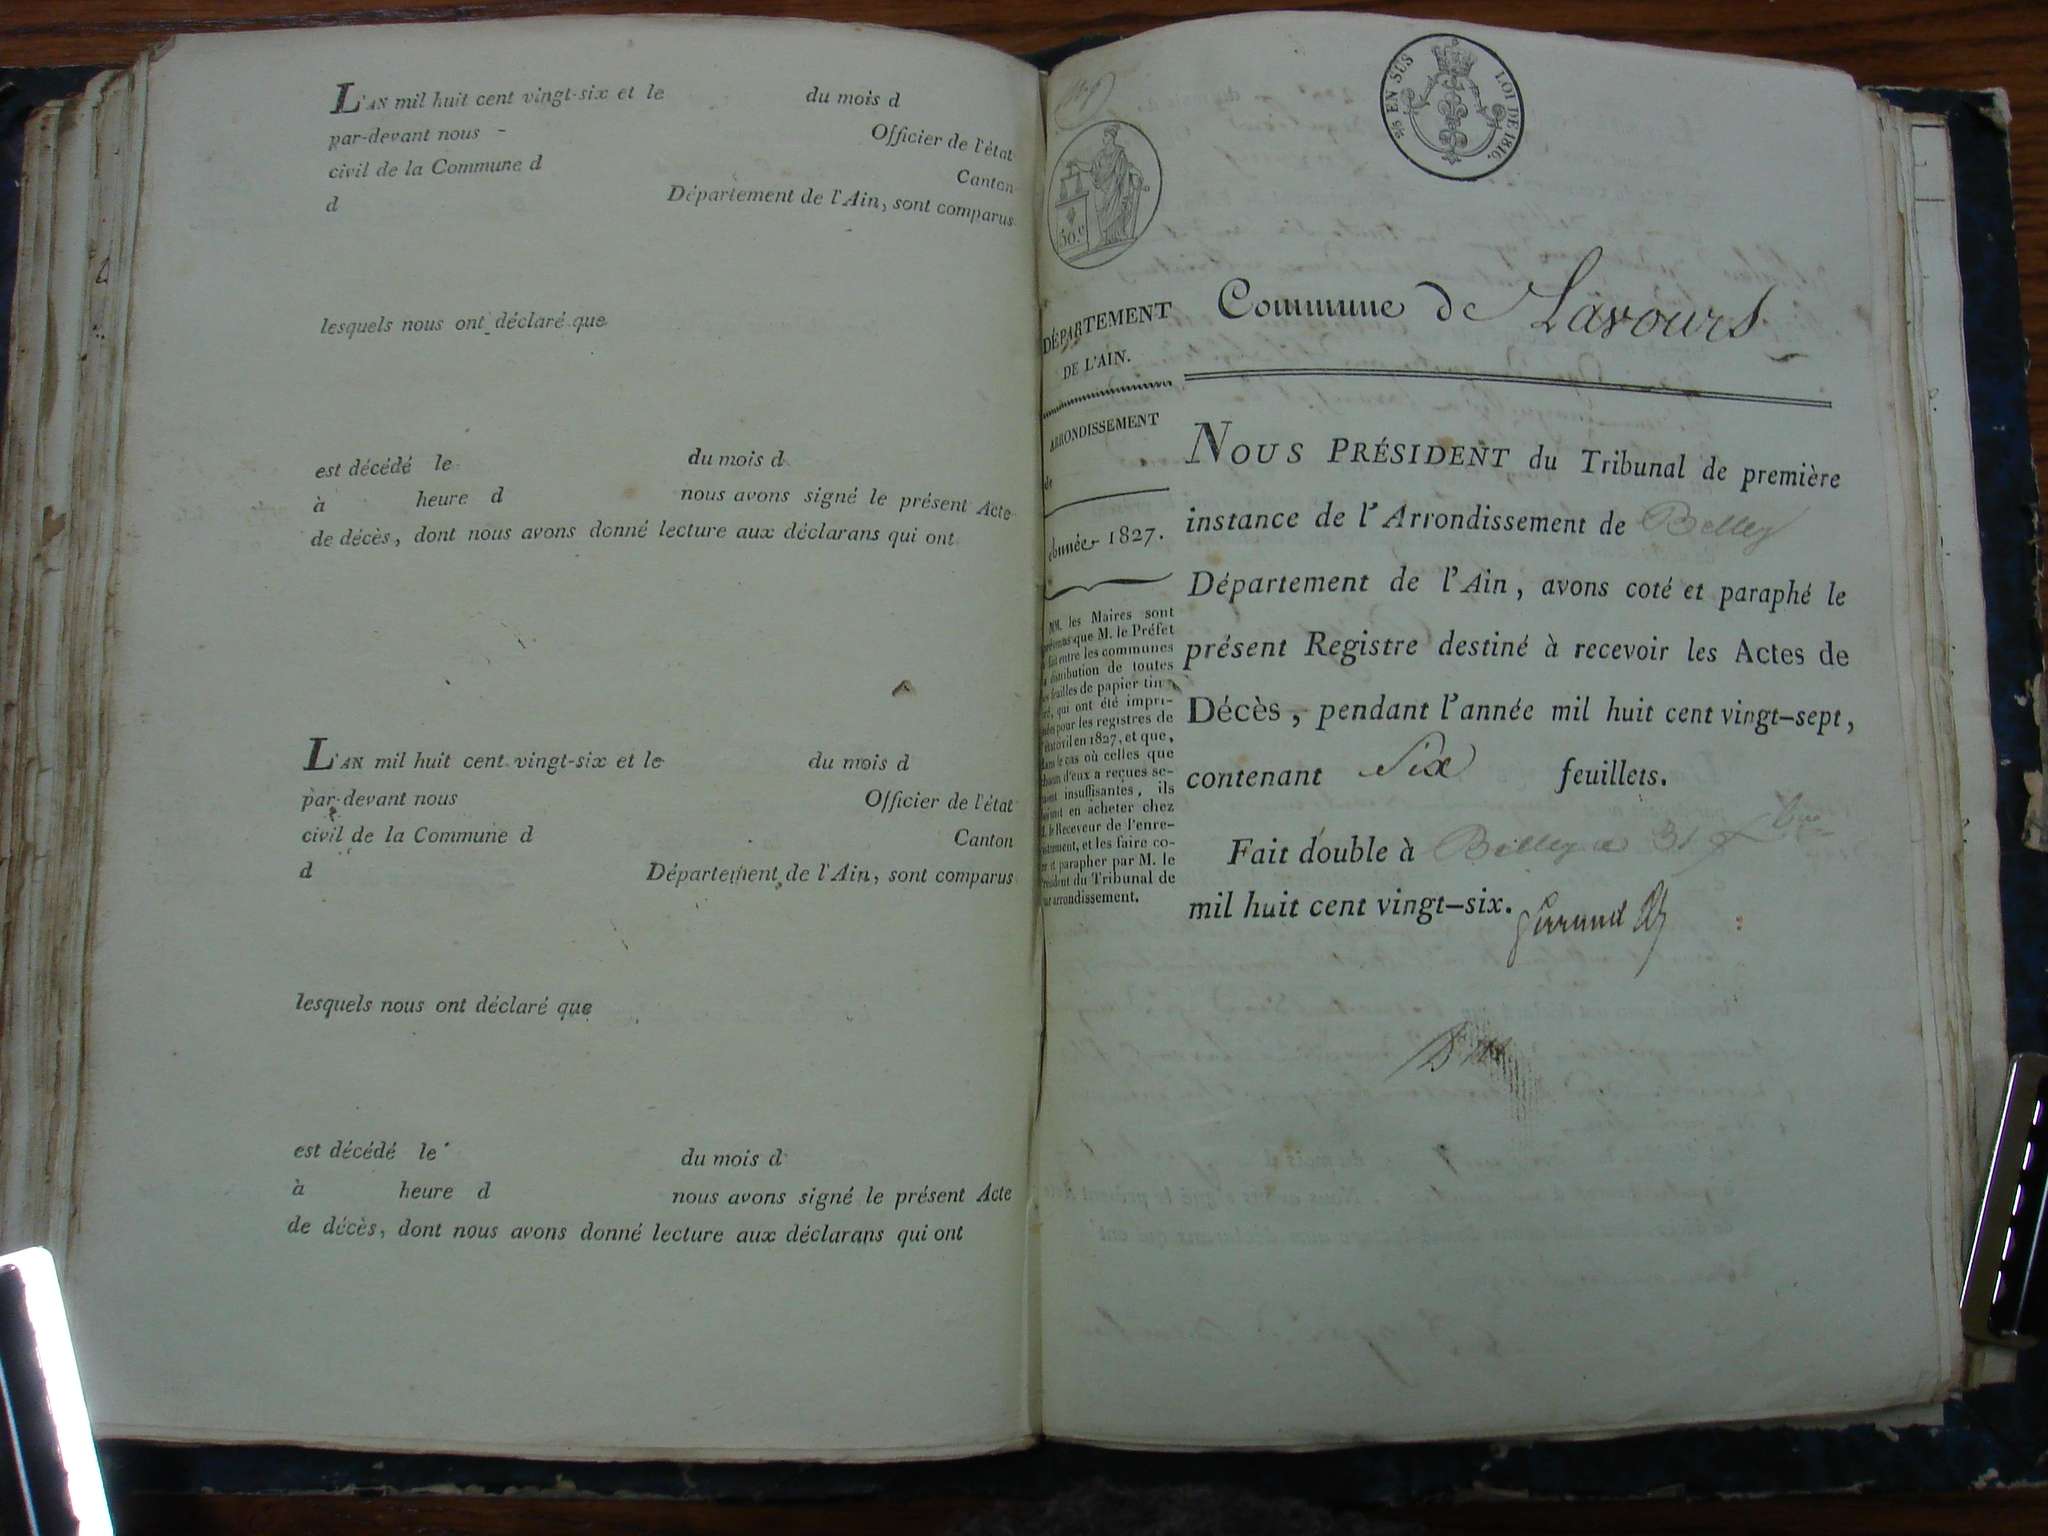 L'AN mil huit cent vingt-six et le du mois d
par-devant nous Officier de l'état
civil de la Commune d Canton
d Département de l'Ain, sont comparus
lesquels nous ont déclaré que
est décédé le du mois d
à heure d nous avons signé le présent Acte
de décès, dont nous avons donné lecture aux déclarans qui ont
L'AN mil huit cent vingt-six et le du mois d
par-devant nous Officier de l'état
civil de la Commune d Canton
d Département de l'Ain, sont comparus
lesquels nous ont déclaré que
est décédé le du mois d
à heure d nous avons signé le présent Acte
de décès, dont nous avons donné lecture aux déclarans qui ont
EN SUS LOI DE 1816.
50.c
DÉPARTEMENT
DE L'AIN.
ARRONDISSEMENT
de
Année 1827.
MM. les Maires sont
prévenus que M. le Préfet
a fait entre les communes
la distribution de toutes
les feuilles de papier tim-
bré, qui ont été impri-
mées pour les registres de
l'état civil en 1827, et que,
dans le cas où celles que
chacun d'eux a reçues se-
raient insuffisantes, ils
doivent en acheter chez
M. le Receveur de l'enre-
gistrement, et les faire co-
ter et parapher par M. le
Président du Tribunal de
leur arrondissement.
Commune de Lavours
NOUS PRÉSIDENT du Tribunal de première
instance de l'Arrondissement de Belley
Département de l'Ain, avons coté et paraphé le
présent Registre destiné à recevoir les Actes de
Décès, pendant l'année mil huit cent vingt-sept,
contenant Six feuillets.
Fait double à Belley le 31 Xbre
mil huit cent vingt-six.